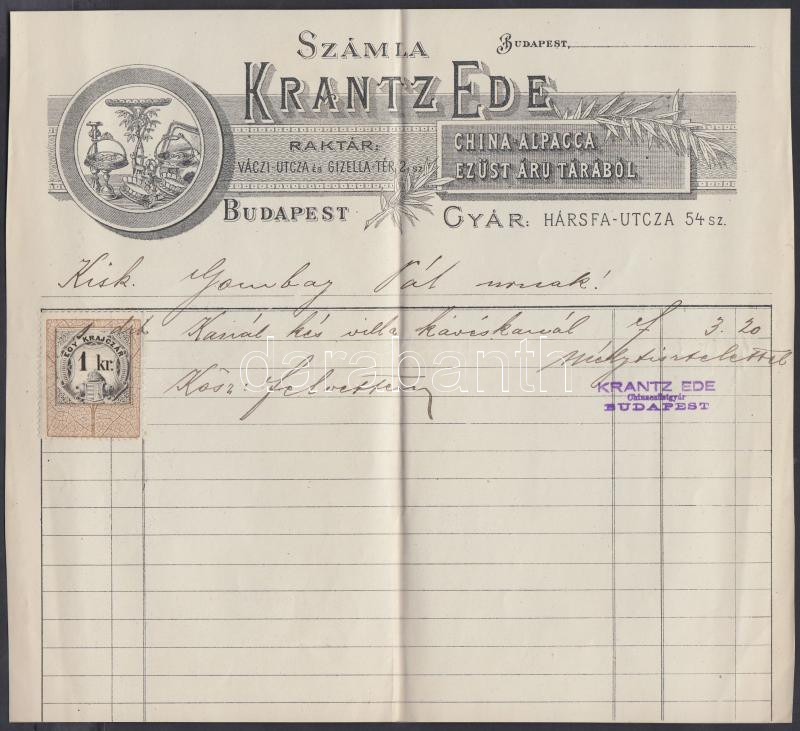 SZÁMLA
BUDAPEST,
KRANTZ EDE
RAKTÁR:
VÁCZI-UTCZA és GIZELLA-TÉR, 2, sz.
CHINA-ALPACCA
EZÜST ÁRU TÁRÁBÓL
BUDAPEST
GYÁR: HÁRSFA-UTCZA 54 SZ.
Kisk. Gombay Pál urnak!
1 dtb Kanál kés villa kávéskanál f 3.20
EGY KRAJCZÁR
1 kr.
Mély tisztelettel
Kösz: felvettem
KRANTZ EDE
Chinaezüstgyár
BUDAPEST
darabanth.com